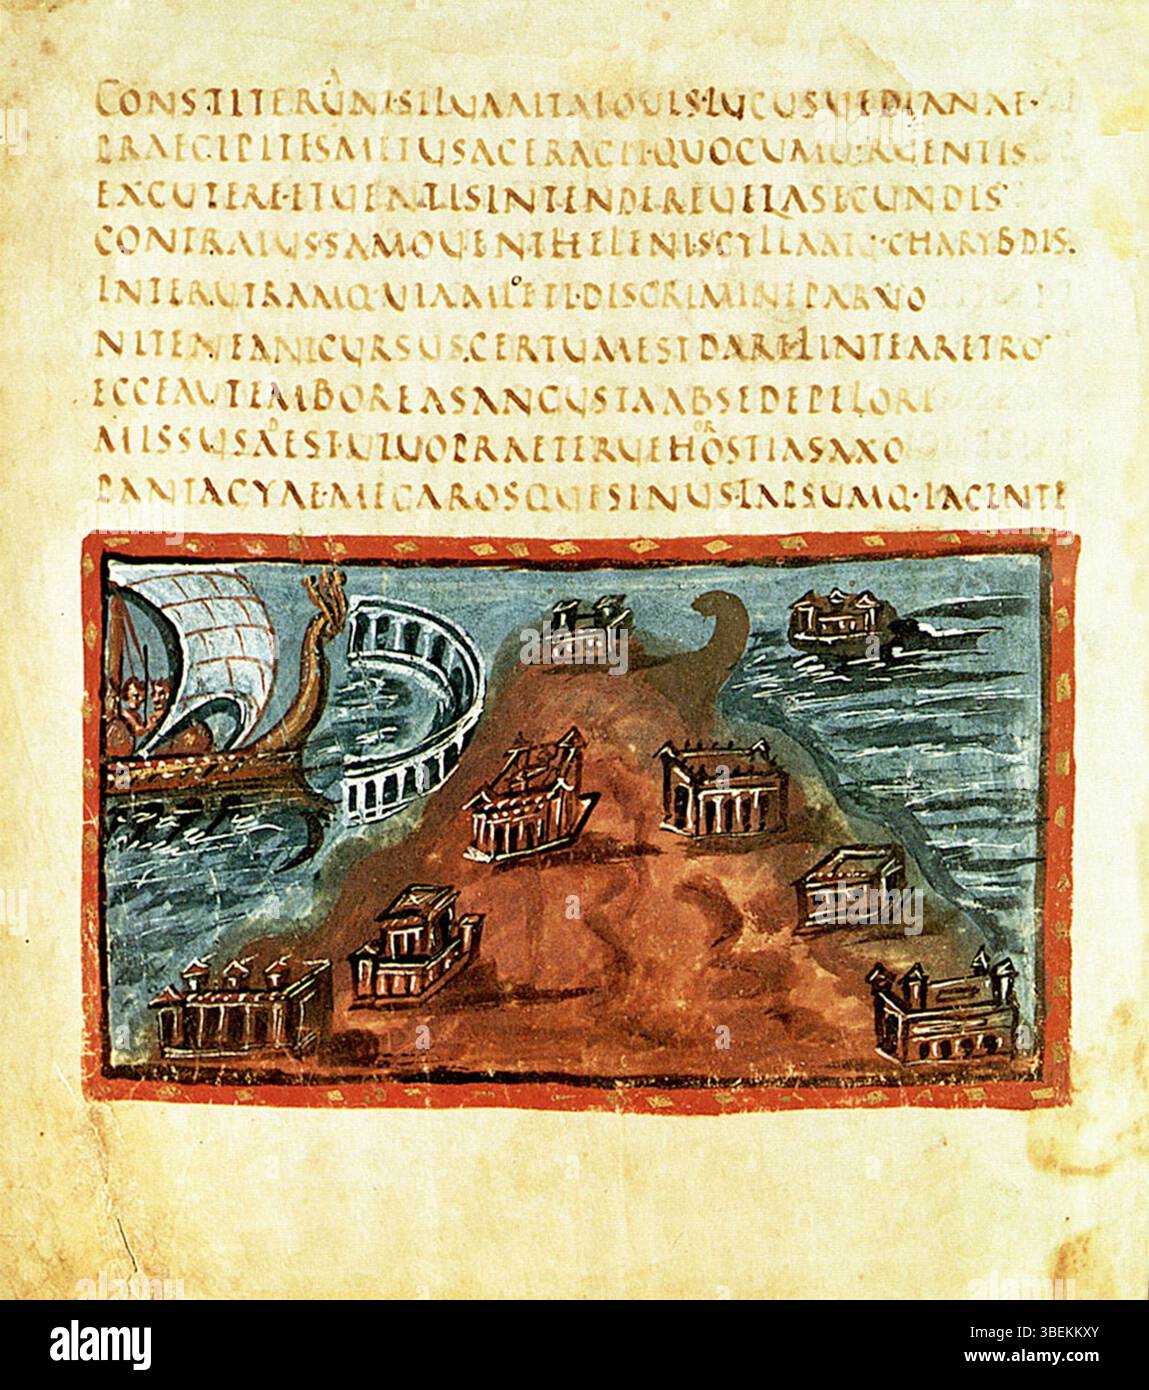 CONSTITERUNT·SILUAALTAIOUIS·LUCUSUEDIANAE·
PRAECIPITESMETUSACERAGIT·QUOCUMQ·RUENTIS
EXCUTERE·ETUENTISINTENDEREUELASECUNDIS
CONTRAIUSSAMOUENTHELENI·SCYLLAATQ·CHARYBDIS.
INTERUTRAMQ·UIAMLETI·DISCRIMINEPARUO
NITENEANTCURSUS.CERTUMESTDARELINTEARETRO
ECCEAUTEMBOREASANGUSTAABSEDEPELORI
MISSUSADEST·UIUOPRAETERUEHOROSTIASAXO
PANTAGYAE·MEGAROSQUESINUS·TAPSUMQ·IACENTE
alamy
Image ID: 3BEKKXY
www.alamy.com